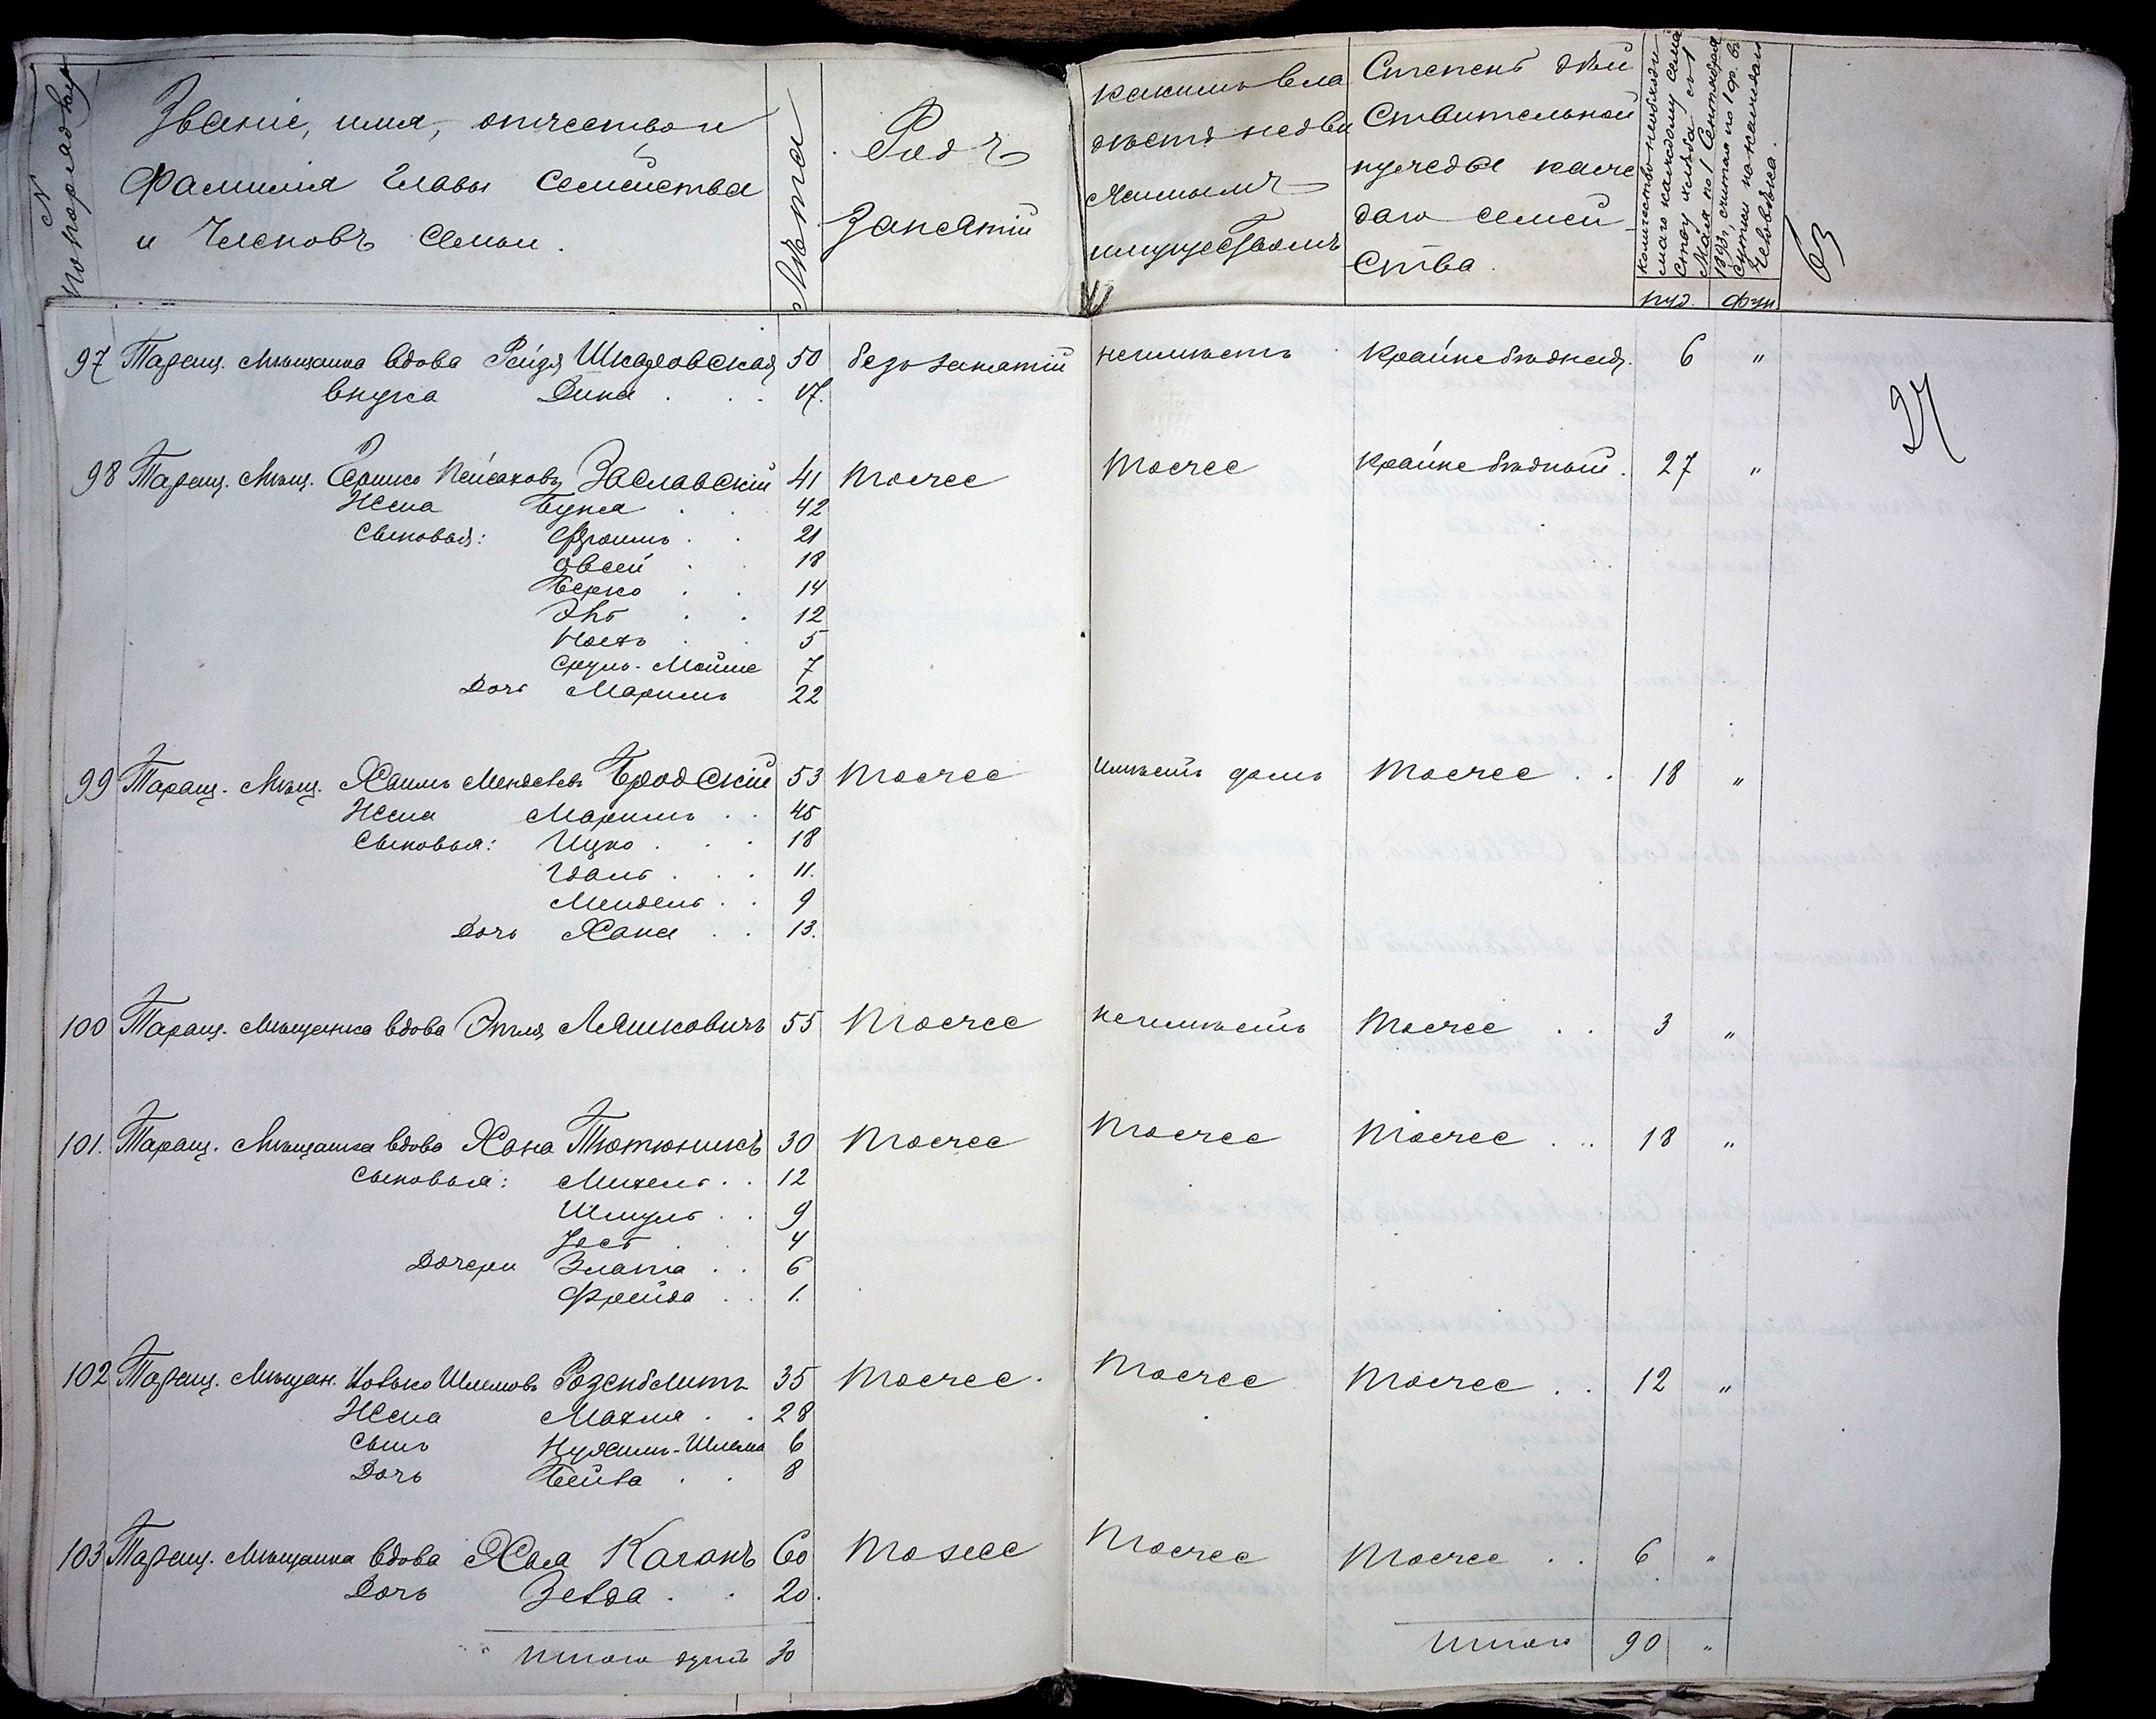 № по порядку
Званіе, имя, отчество и
фамилія главы семейства
и членовъ семьи.
Лѣта
Родъ
занятій
какимъ вла
дѣетъ недви
жимымъ
имуществомъ
Степень дѣй
ствительной
нужды каж
даго семей
ства.
Количество необходи
маго каждому семей
ству хлѣба съ 1
Мая по 1 Сентября
1893 г., считая по 1 ф. въ
сутки на каждаго
человѣка.
пуд. фун
63
97 Таращ. мѣщанка вдова Рейзя Шкаровская 50 безъ занятій неимѣетъ крайне бѣдная. 6 "
внука Дина . . . 17.
24
98 Таращ. мѣщ. Гершко Пейсаховъ Заславскій 41 тоже тоже крайне бѣдный. 27 "
Жена Буня . . 42
Сыновья: Фроимъ . . 21
Овсей . . 18
Берко . . 14
. . 12
. . 5
Сруль-Мойше 7
Дочь Маримъ 22
99 Таращ. мѣщ. Хаимъ Менделевъ Бродскій 53 тоже имѣетъ домъ тоже . . 18 "
Жена Маримъ . . 45
Сыновья: Ицко . . . 18
Гдаль . . . 11.
Мендель . . 9
Дочь Хана . . 13.
100 Таращ. мѣщанка вдова Этля Ляшковичъ 55 тоже неимѣетъ тоже . . 3 "
101. Таращ. мѣщанка вдова Хана Тютюникъ 30 тоже тоже тоже . .. 18 "
Сыновья: Михель . . 12
Шмуль . . 9
Іось . 4
Дочери Злата . . 6
Фрейда . . 1.
102 Таращ. мѣщан. Іовько Шлемовъ Розенблитъ 35 тоже. тоже тоже . . 12 "
Жена Махля . . 28
Сынъ Нухимъ-Шлема 6
Дочь Бейла . . 8
103 Таращ. мѣщанка вдова Хая Каганъ 60 тоже тоже тоже . . 6 "
Дочь Зелда . . 20.
Итого душъ 30 Итого 90 "